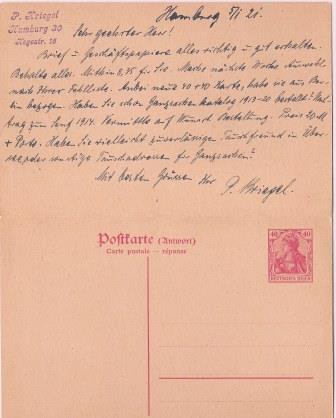 P. Kriegel
Hamburg 30
Hegestr. 16
Hamburg 5/1 21.
Sehr geehrter Herr!
Brief u. Geschäftspapiere alles richtig u. gut erhalten.
Behalte alles. Mithin 8,75 für Sie. Mache nächste Woche Auswahl
nach Ihrer Fehlliste. Anbei neue 40 + 40 Karte, habe sie aus Ber-
lin bezogen. Haben Sie schon Ganzsachen Katalog 1913-20 bestellt? Nach-
trag zum Senf 1914. Vermittle auf Wunsch Bestellung. Preis 20 M
+ Porto. Haben Sie vielleicht zuverlässige Tauschfreund in Über-
see oder sonstige Tauschadressen für Ganzsachen?
Mit besten Grüssen Ihr P. Kriegel.
Postkarte (Antwort)
Carte postale — réponse
40 40
DEUTSCHES REICH